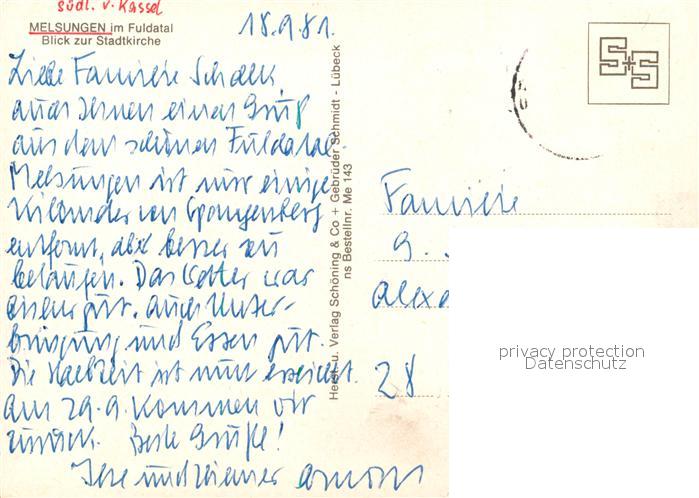 südl. v. Kassel
MELSUNGEN im Fuldatal
Blick zur Stadtkirche
18.9.81.
Liebe Familie Schalk
auch Ihnen einen Gruß
aus dem schönen Fuldatal.
Melsungen ist nur einige
Kilometer von Spangenberg
entfernt, aber besser zu
belaufen. Das Wetter war
bisher gut. auch Unter-
bringung und Essen gut.
Die Halbzeit ist nun erreicht.
am 29.9. kommen wir
zurück. Beste Grüße!
Ilse und
Herst. u. Verlag Schöning & Co + Gebrüder Schmidt - Lübeck
ns Bestellnr. Me 143
S+S
Familie
G.
Alexa
28
privacy protection
Datenschutz